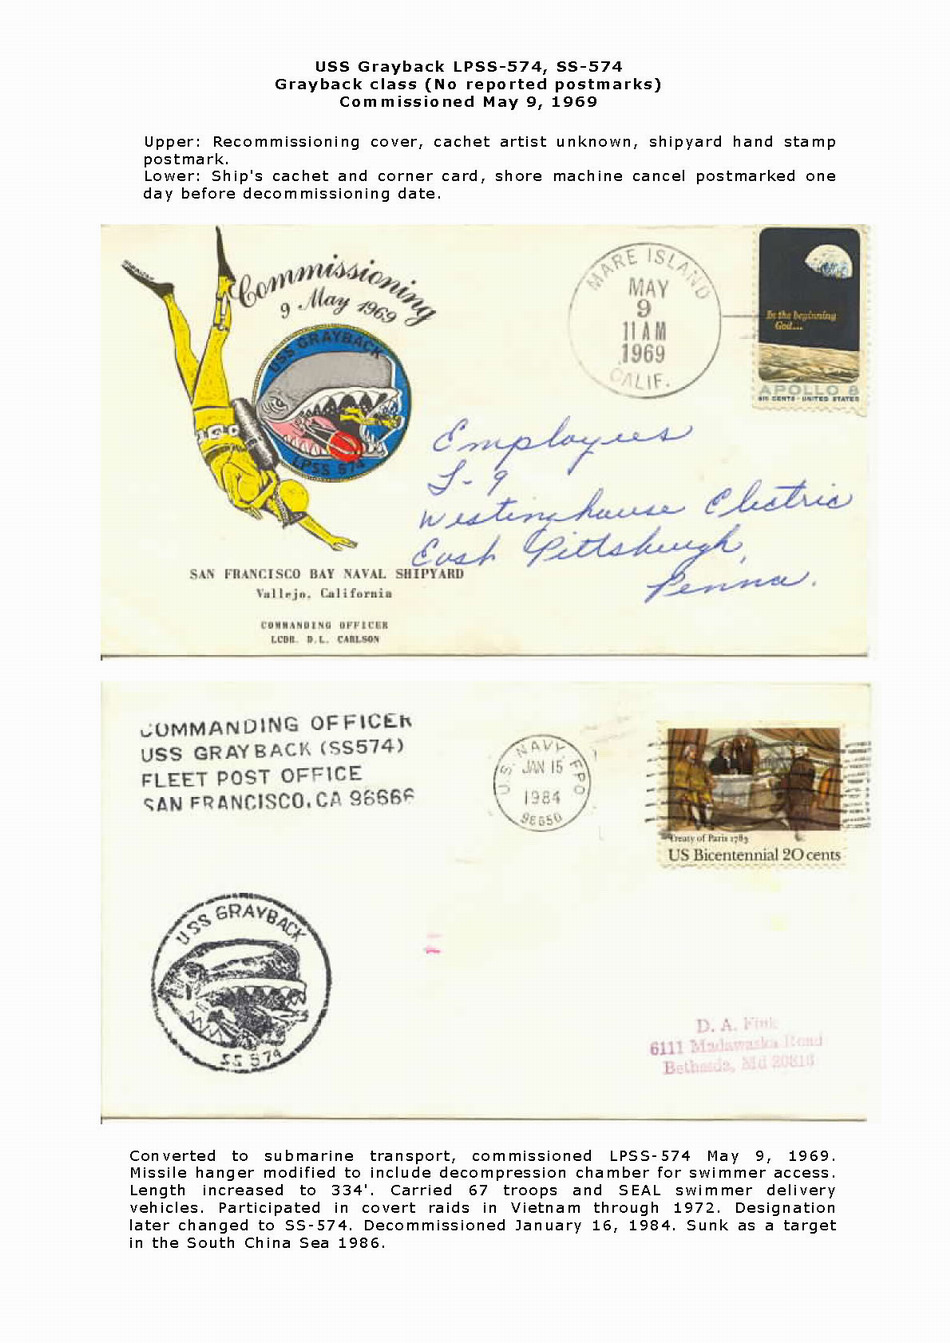 USS Grayback LPSS-574, SS-574
Grayback class (No reported postmarks)
Commissioned May 9, 1969
Upper: Recommissioning cover, cachet artist unknown, shipyard hand stamp
postmark.
Lower: Ship's cachet and corner card, shore machine cancel postmarked one
day before decommissioning date.
Commissioning
9 May 1969
USS GRAYBACK
LPSS 574
SAN FRANCISCO BAY NAVAL SHIPYARD
Vallejo, California
COMMANDING OFFICER
LCDR. D.L. CARLSON
MARE ISLAND
MAY
9
11 AM
1969
CALIF.
In the beginning
God...
APOLLO 8
SIX CENTS · UNITED STATES
Employees
Westinghouse Electric
East Pittsburgh,
Penna.
COMMANDING OFFICER
USS GRAYBACK (SS574)
FLEET POST OFFICE
SAN FRANCISCO, CA 96666
U.S. NAVY FPO
JAN 15
1984
Treaty of Paris 1783
US Bicentennial 20 cents
USS GRAYBACK
SS 574
D. A. Fink
6111 Madawaska Road
Bethesda, Md 20816
Converted to submarine transport, commissioned LPSS-574 May 9, 1969.
Missile hanger modified to include decompression chamber for swimmer access.
Length increased to 334'. Carried 67 troops and SEAL swimmer delivery
vehicles. Participated in covert raids in Vietnam through 1972. Designation
later changed to SS-574. Decommissioned January 16, 1984. Sunk as a target
in the South China Sea 1986.